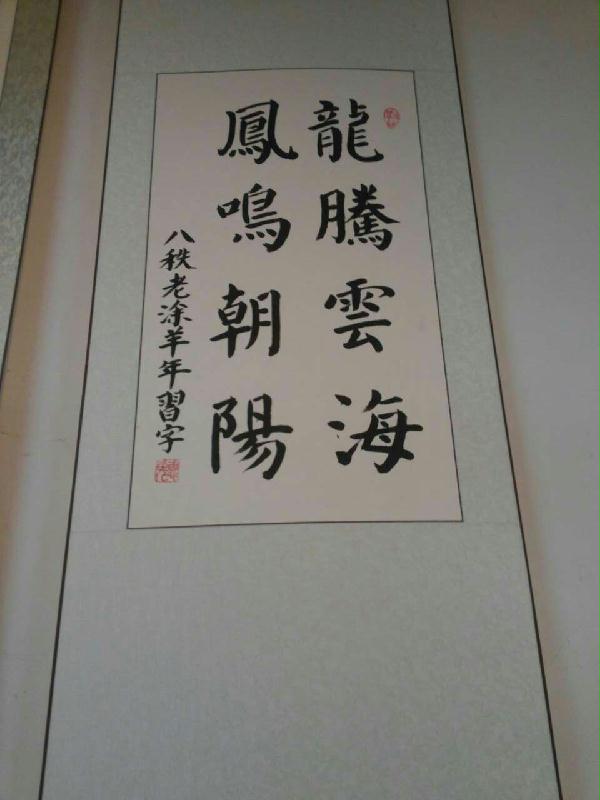 龍騰雲海
鳳鳴朝陽
八秩老涂羊年習字